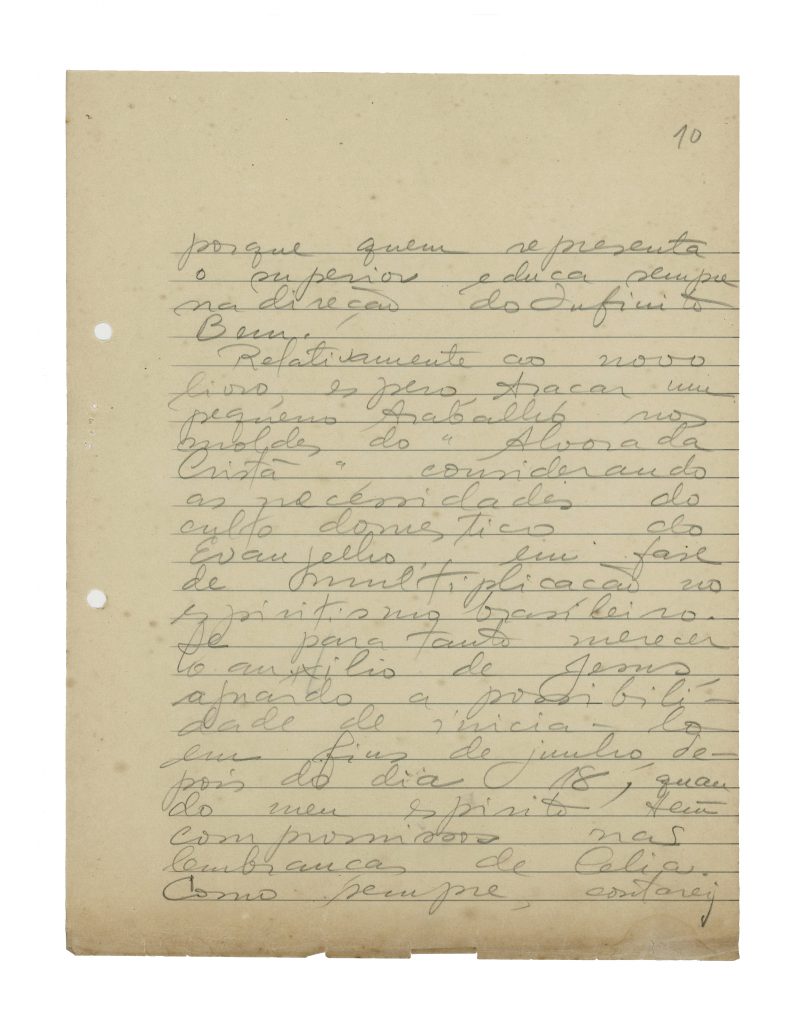 10
porque quem representa
o superior educa sempre
na direção do Infinito
Bem.
Relativamente ao novo
livro, espero traçar um
pequeno trabalho nos
moldes do " Alvorada
Cristã " considerando
as necessidades do
culto doméstico do
Evangelho, em fase
de multiplicação no
espiritismo brasileiro.
Se para tanto merecer
o auxílio de Jesus,
aguardo a possibili-
dade de inicia-lo
em fins de junho, de-
pois do dia 18, quan
do meu espirito tem
compromissos nas
lembranças de Celia.
Como sempre, contarei